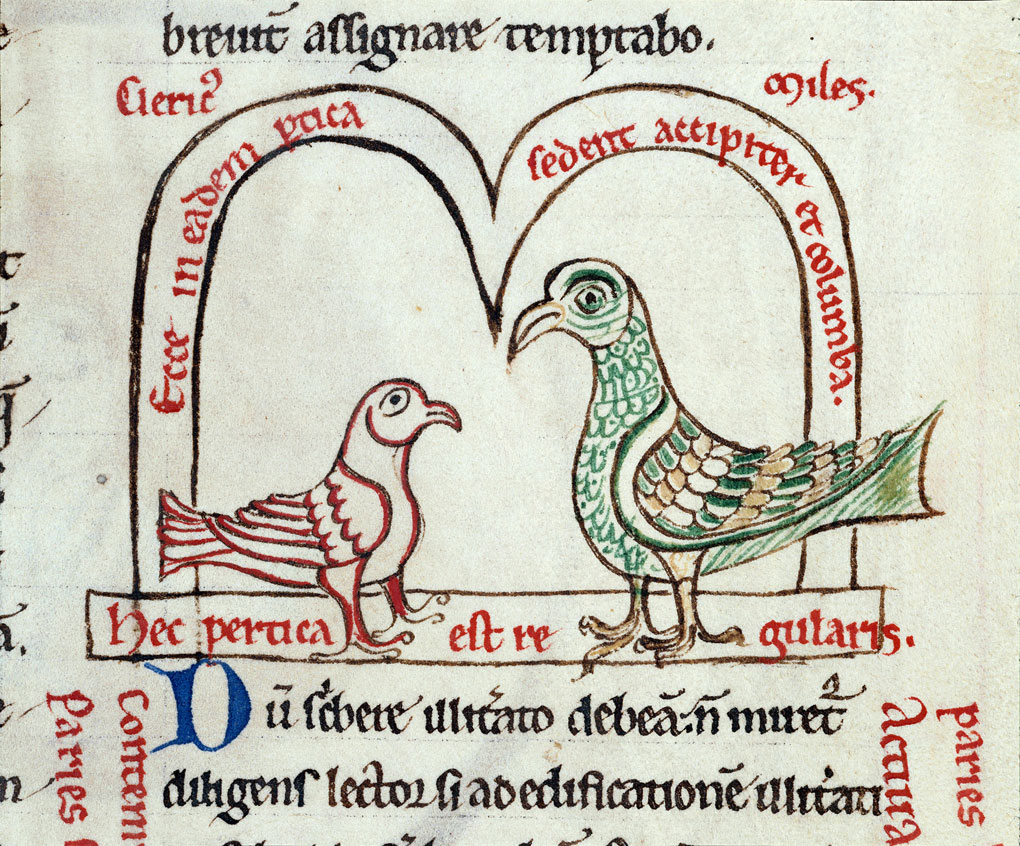 breuit̄ assignare temptabo.
Cleric᷒
Miles.
Ecce in eadem ptica
sedent accipiter et columba.
hec pertica est re gularis.
Dū sc̾bere illit̾ato debeā: n̄ miret᷑
diligens lector si ad edificationē illit̾ati
Paries
Contem
Activa
paries